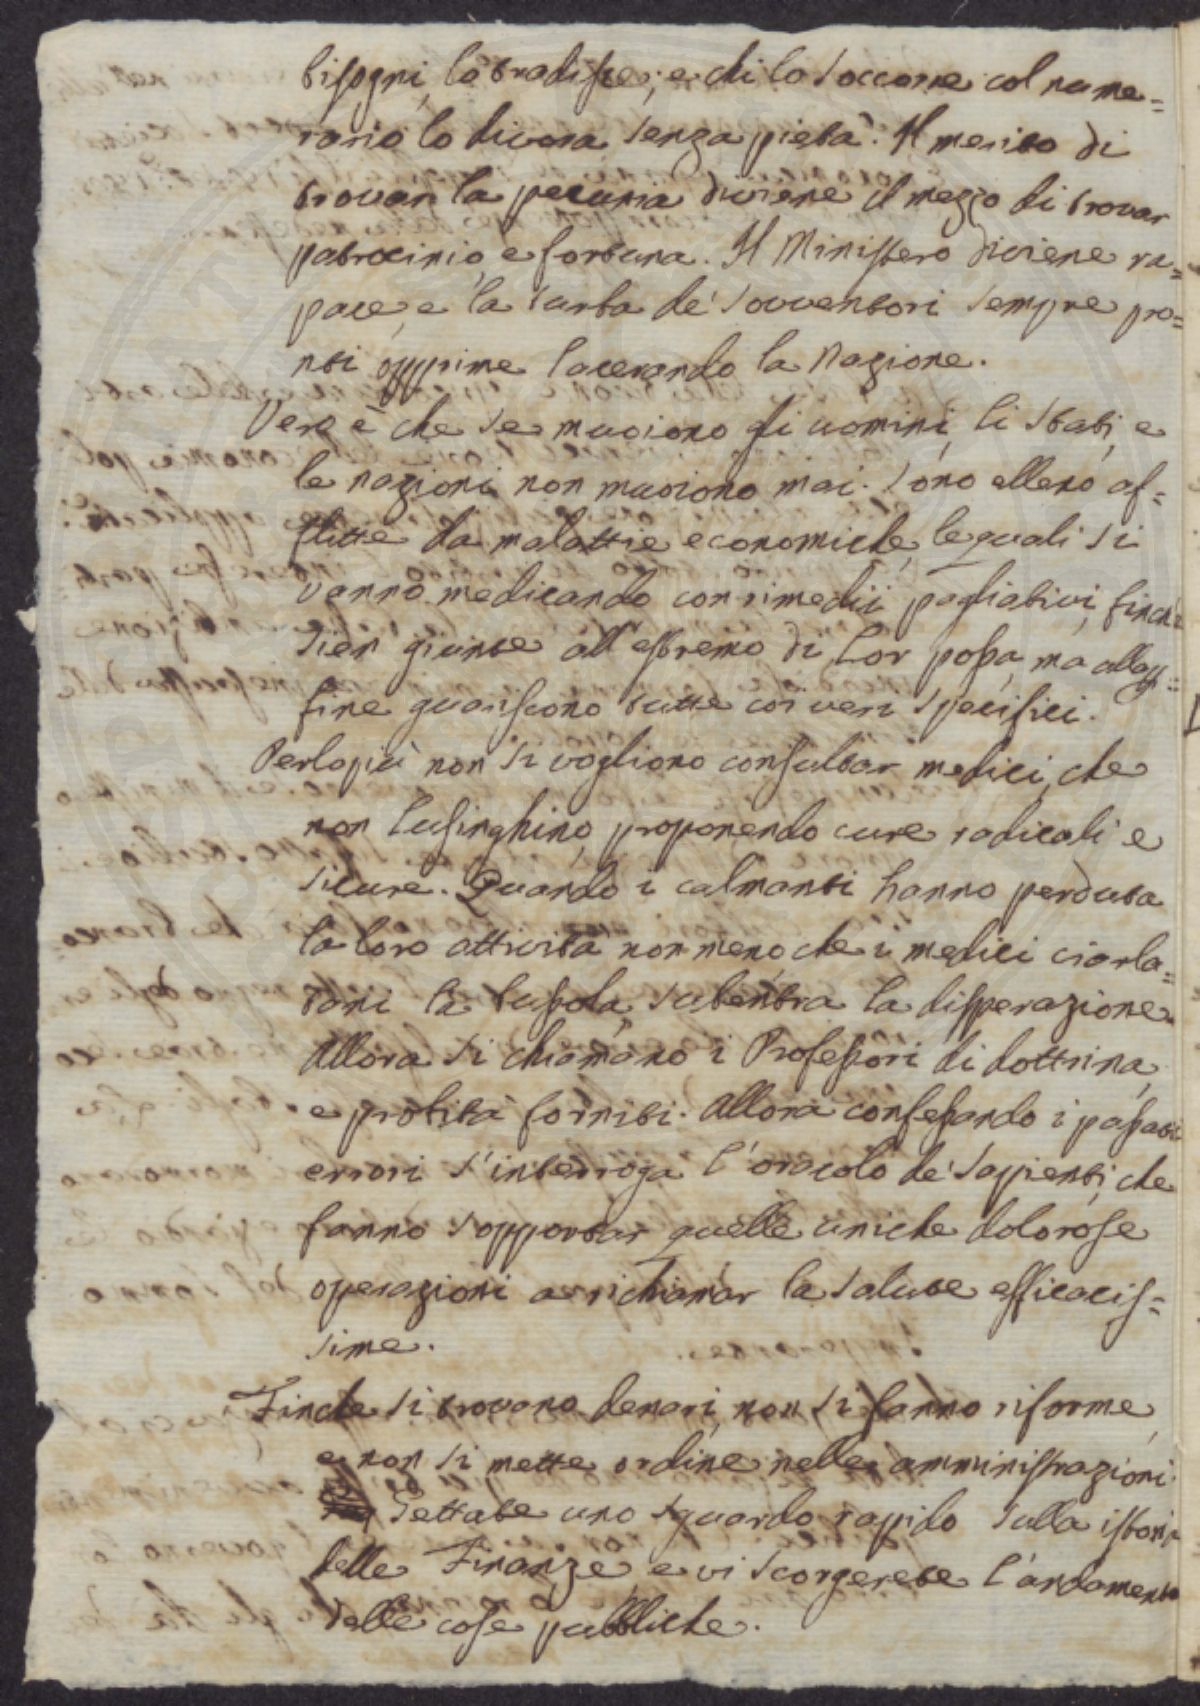 bisogni, lo tradisce; e chi lo soccorre col nume=
rario lo divora senza pietà. Il merito di
trovar la pecunia diviene il mezzo di trovar
patrocinio, e fortuna. Il Ministero diviene ra=
pace, e la turba de' sovventori sempre pro=
nti opprime lacerando la Nazione.
Vero è che se muoiono gli uomini, li Stati, e
le nazioni non muoiono mai. Sono elleno af=
flitte da malattie economiche, le quali si
vanno medicando con rimedii pagliativi, finchè
sien giunte all'estremo di lor possa, ma alla
fine guariscono tutte coi veri specifici.
Perlopiù non si vogliono consultar medici, che
non lusinghino, proponendo cure radicali e
sicure. Quando i calmanti hanno perduta
la loro attività non meno che i medici ciarla=
tani la bussola, subentra la disperazione.
Allora si chiamano i Professori di dottrina,
e probità forniti. Allora confessando i passati
errori s'interroga l'oracolo de' Sapienti, che
fanno sopportar quelle uniche dolorose
operazioni a richiamar la salute efficacis=
sime.
Finche si trovano denari, non si fanno riforme,
e non si mette ordine nelle amministrazioni.
Gettate uno sguardo rapido sulla istoria
delle Finanze e vi scorgerete l'andamento
delle cose pubbliche.